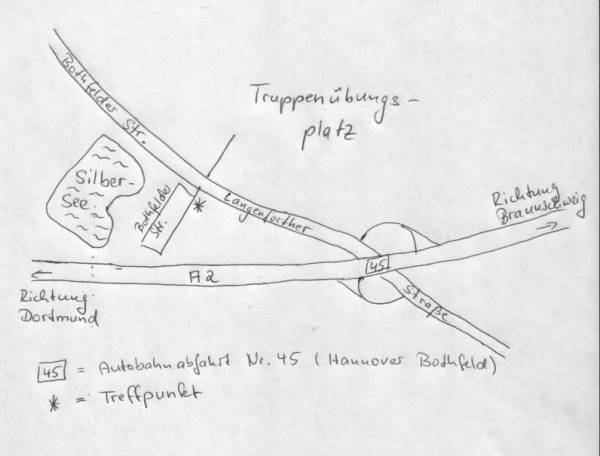 Bothfelder Str.
Truppenübungs-
platz
Silber-
See
Bothfelder
Str.
*
Langenforther
Richtung
Braunschweig
A2
45
Straße
Richtung
Dortmund
45 = Autobahnabfahrt Nr. 45 (Hannover Bothfeld)
* = Treffpunkt